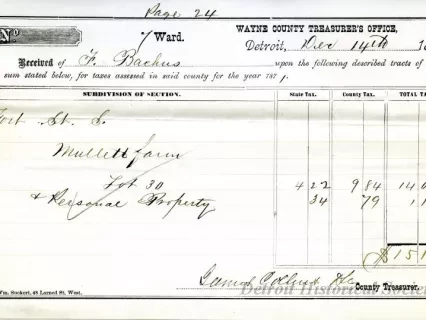 Page 24
No
7 Ward.
WAYNE COUNTY TREASURER'S OFFICE,
Detroit, Dec 14th 18
Received of F. Backus upon the following described tracts of
sum stated below, for taxes assessed in said county for the year 1871.
SUBDIVISION OF SECTION. State Tax. County Tax. TOTAL TA
Fort St. S.
Mullett farm
Lot 30 4 22 9 84 14.0
& Personal Property 34 79 1.1
$15.1
County Treasurer.
Wm. Sockert, 48 Larned St. West.
Detroit Historical Society